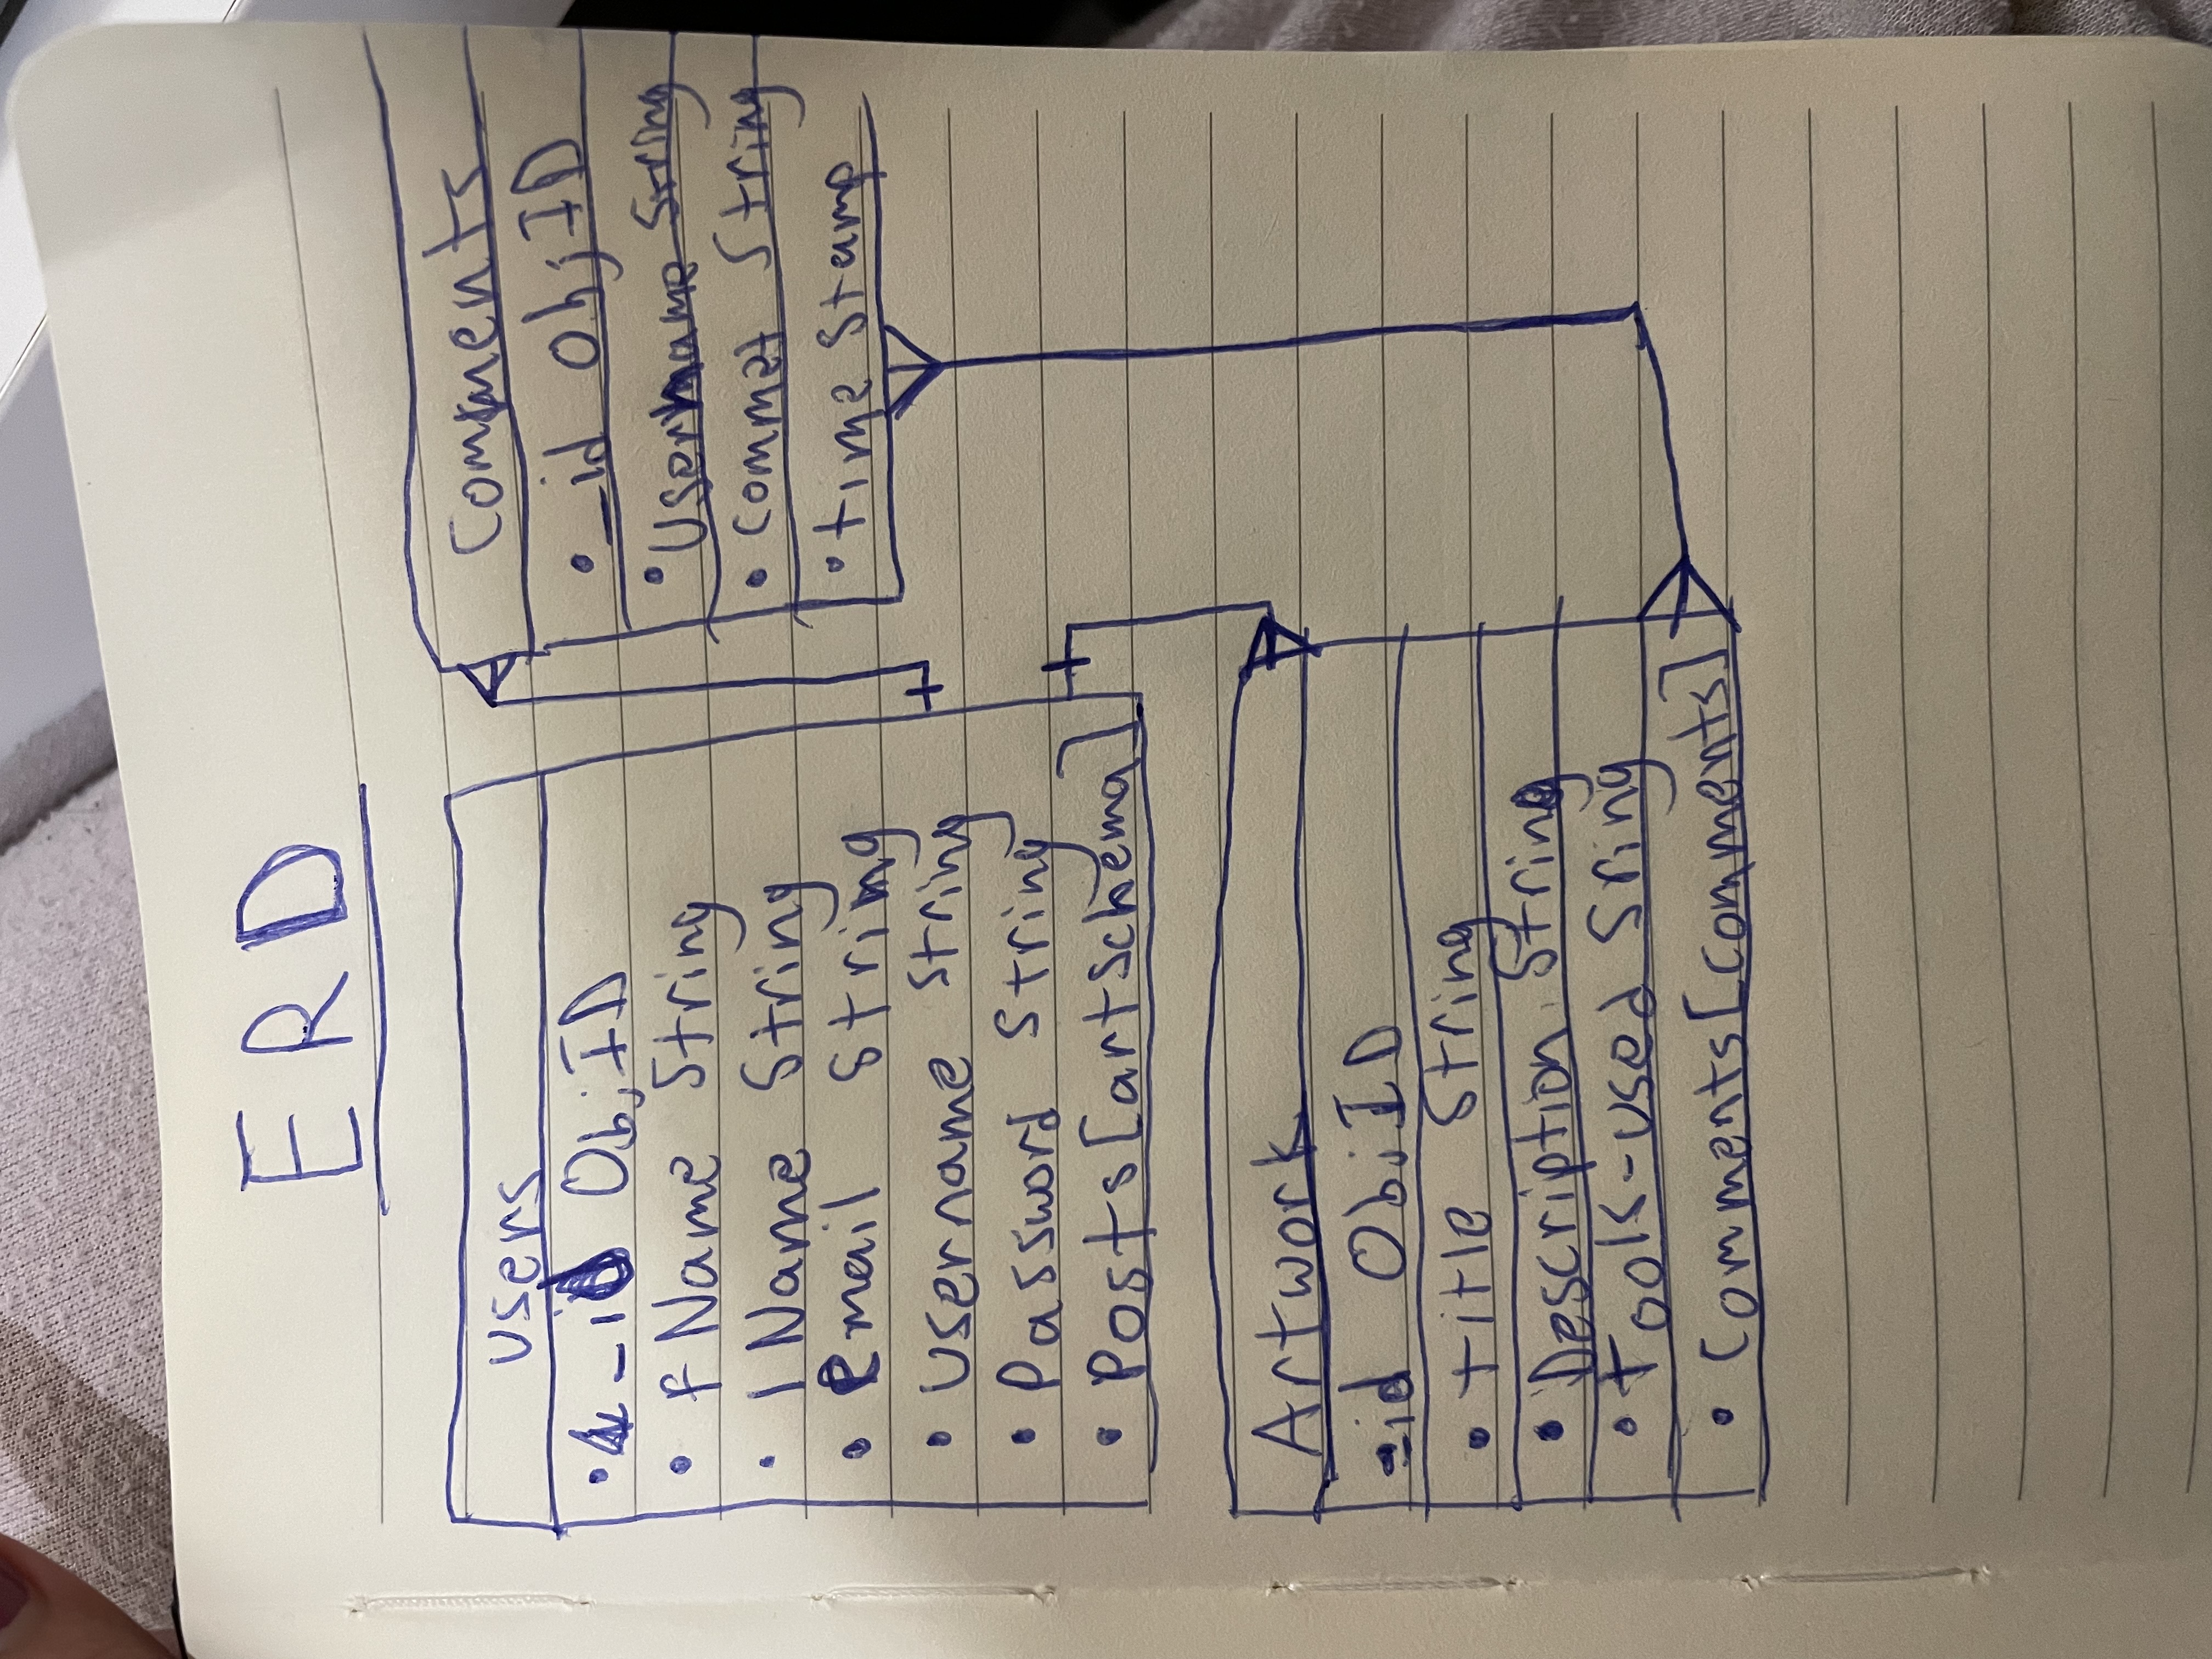 ERD
Users
• _id ObjID
• fName String
• lName String
• email String
• Username String
• Password String
• Posts[artSchema]
Comments
• _id ObjID
• Username String
• Commet String
• time Stamp
Artwork
_id ObjID
• title String
• Description String
• tools-used Sring
• Comments[comments]